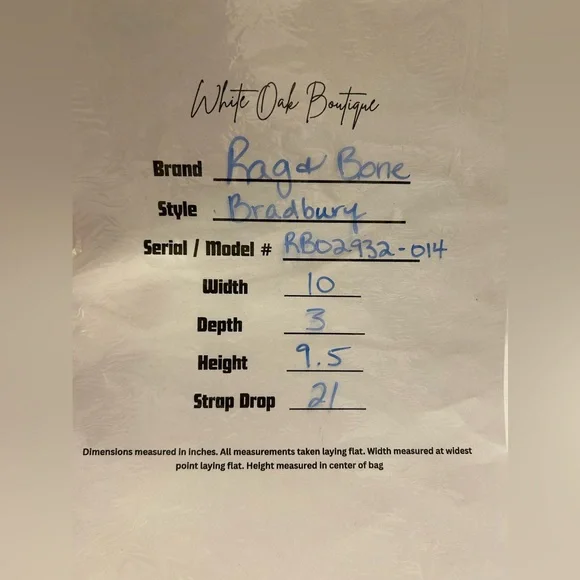 White Oak Boutique
Brand Rag & Bone
Style Bradbury
Serial / Model # RB02932-014
Width 10
Depth 3
Height 9.5
Strap Drop 21
Dimensions measured in inches. All measurements taken laying flat. Width measured at widest
point laying flat. Height measured in center of bag